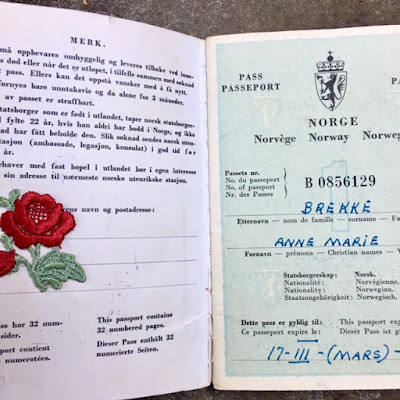 MERK.
må oppbevares omhyggelig og leveres tilbake ved inne-
s død eller når det er utløpet, i tilfelle sammen med søknad
t pass. Ellers kan det oppstå vansker med å få nytt,
fornyes bare unntaksvis og da alene for 3 måneder.
av passet er straffbart.
statsborger som er født i utlandet, taper norsk statsborger-
d fylte 22 år, hvis han aldri har bodd i Norge, og ikke
ad har fått beholde den. Slik søknad sendes norsk uten-
asjon (ambassade, legasjon, konsulat) i god tid før
år.
ehaver med fast bopel i utlandet bør i egen interesse
sin adresse til nærmeste norske utenrikske stasjon.
rens navn og postadresse:
ss har 32 num-
sider.
This passport contains
32 numbered pages.
ort contient
numerotées.
Dieser Pass enthält 32
numerierte Seiten.
PASS
PASSEPORT
PA
PASSPO
NORGE
Norvège Norway Norweg
Passets nr.
No. du passeport
No. of passport
Nr. des Passes
B 0856129
BREKKE
Etternavn — nom de famille — surname — Fa
ANNE MARIE
Fornavn — prénoms — Christian names — V
Statsborgerskap: Norsk.
Nationalité: Norvégienne.
Nationality: Norwegian.
Staatsangehörigkeit: Norwegisch.
Dette pass er gyldig til: This passport expire
Ce passeport expire le: Dieser Pass ist g
17-III-(MARS)-